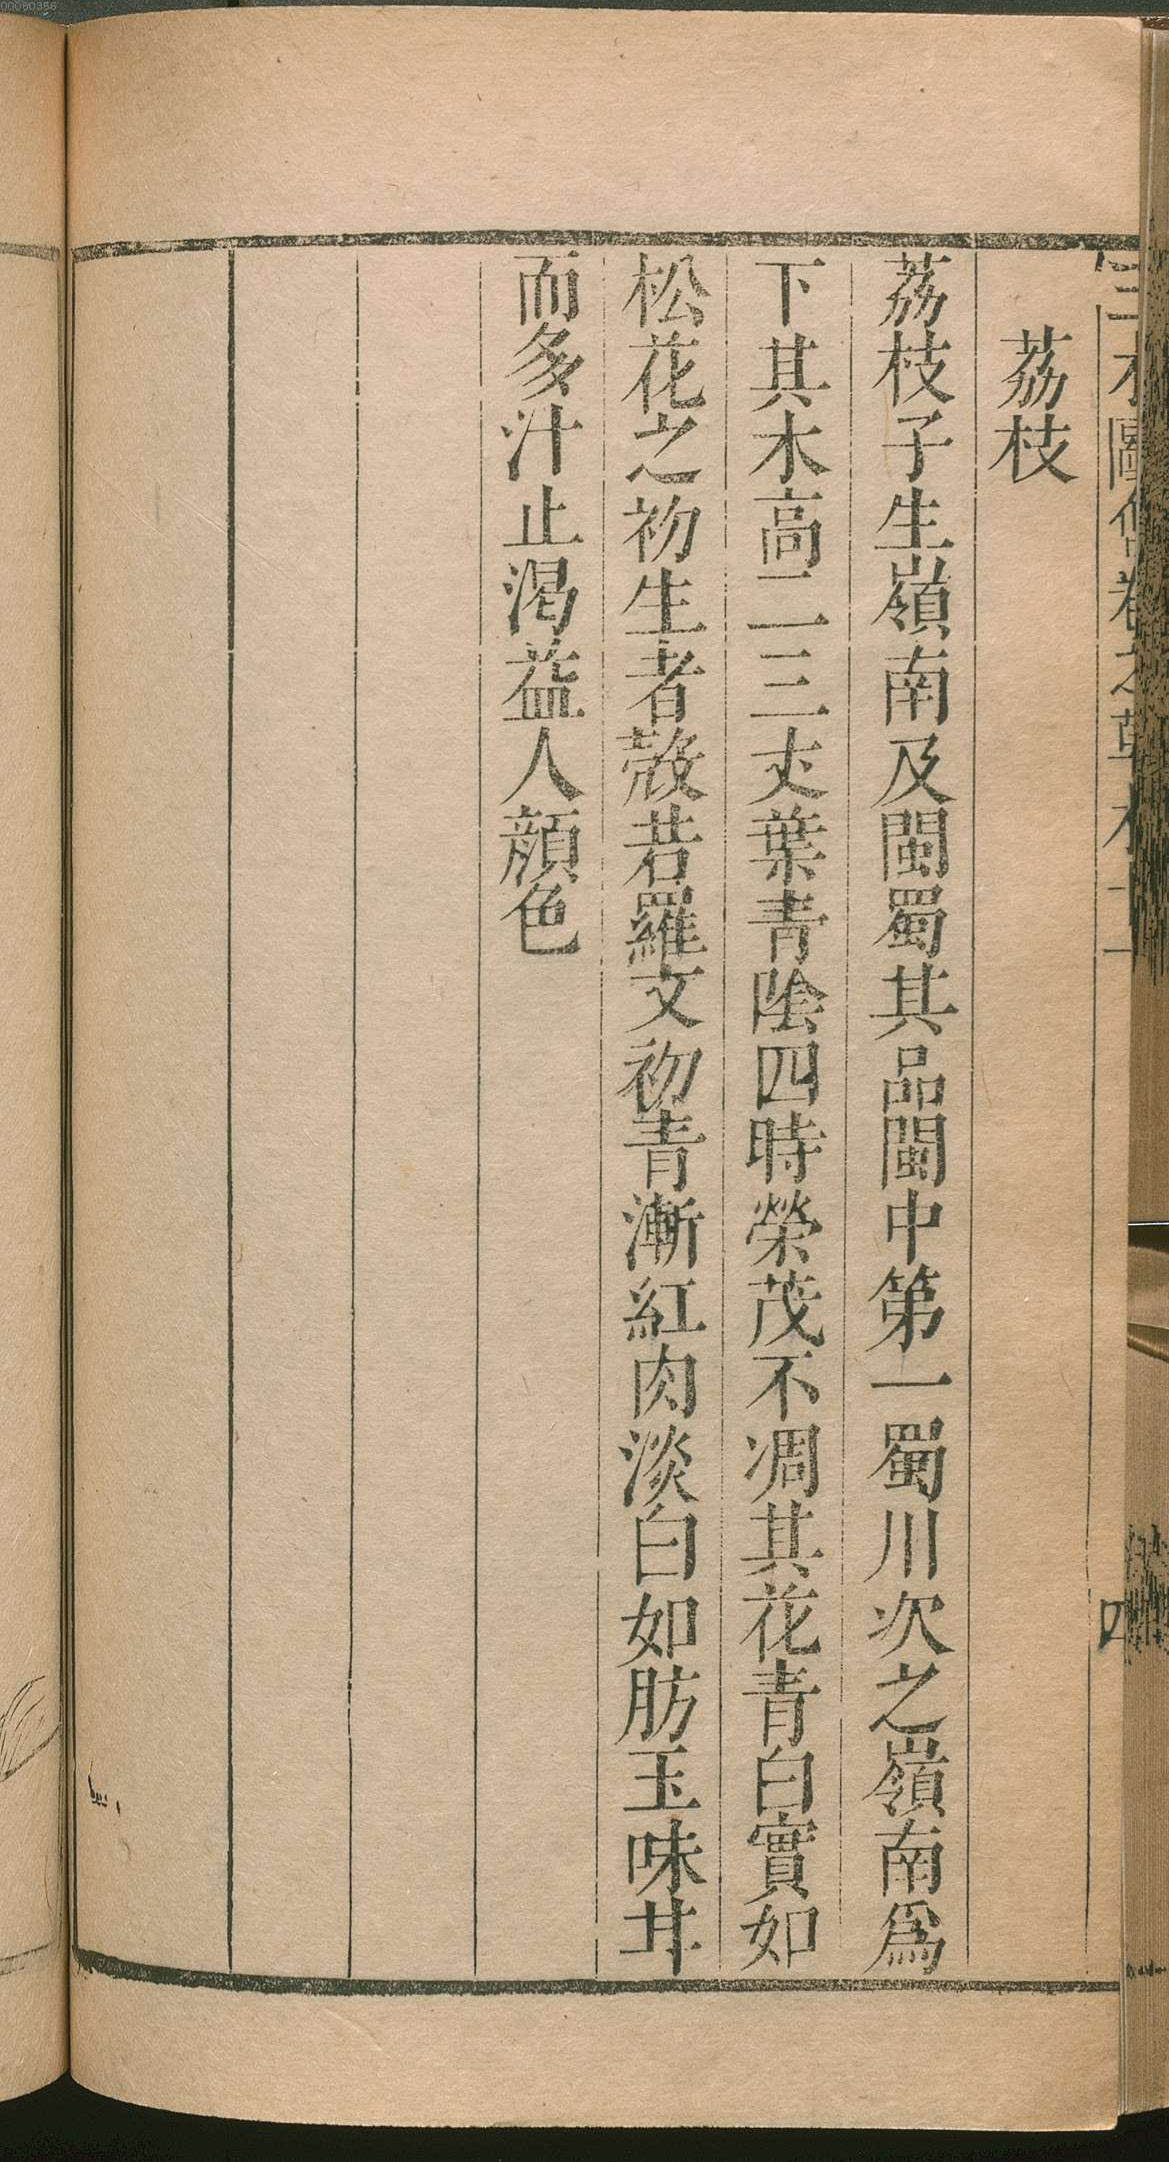 荔枝
荔枝子生嶺南及閩蜀其品閩中第一蜀川次之嶺南爲
下其木高二三丈葉青陰四時榮茂不凋其花青白實如
松花之初生者殼若羅文初青漸紅肉淡白如肪玉味甘
而多汁止渴益人顏色
00080386